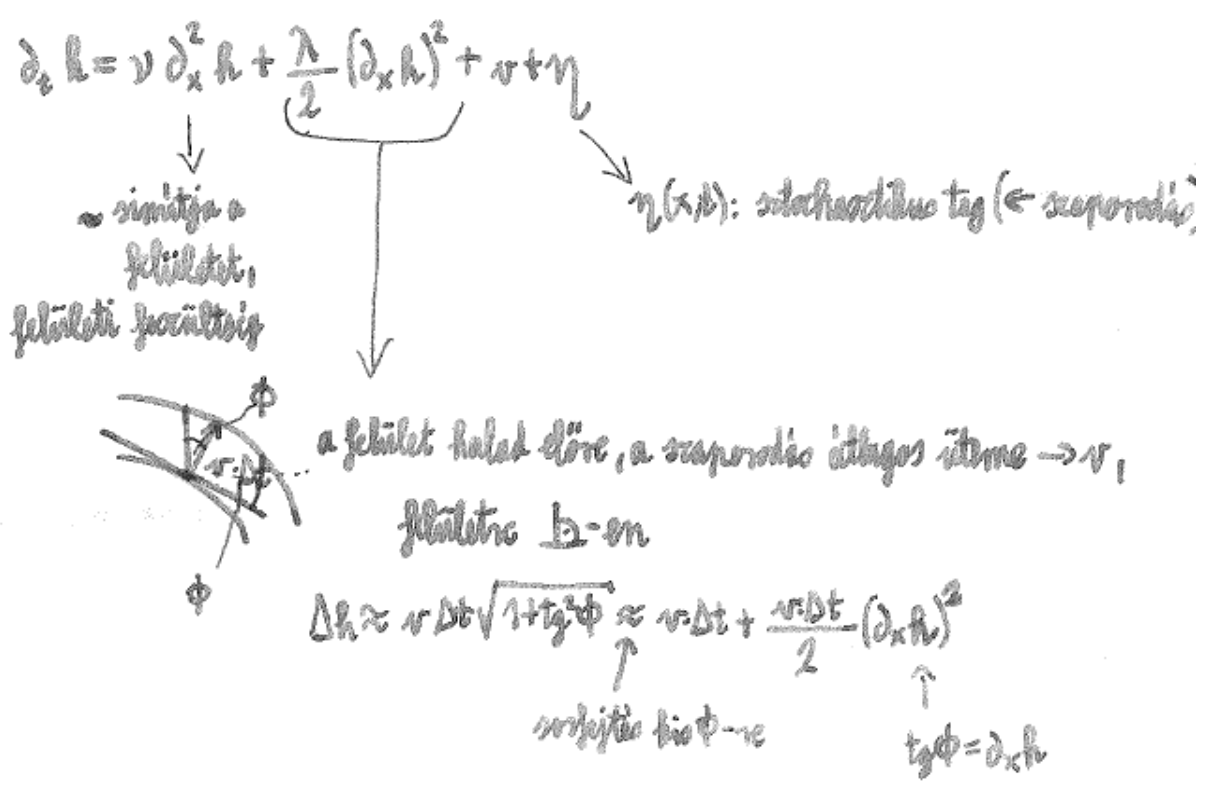 ∂ₜ h = ν ∂ₓ² h + λ/2 (∂ₓ h)² + v + η
~ simítja a
felületet,
felületi feszültség
η(x,t): sztochasztikus tag (← szaporodás)
ϕ
v·Δt
ϕ
a felület halad előre, a szaporodás átlagos üteme → v,
felületre ⊾-en
Δh ≈ v Δt √(1+tg²ϕ) ≈ v·Δt + v·Δt/2 (∂ₓ h)²
sorfejtés kis ϕ-re
tgϕ = ∂ₓ h